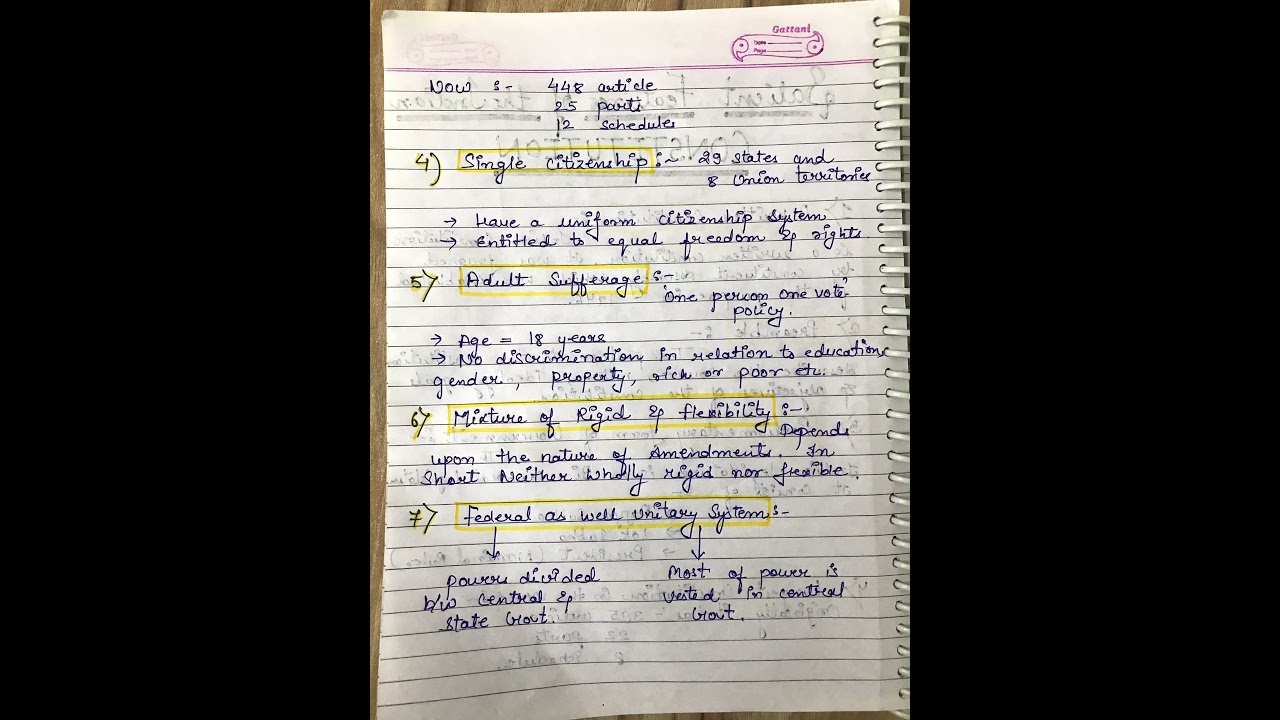 Gattani
Date
Page
Now :- 448 article
25 parts
12 schedules
4) Single citizenship :- 29 states and
8 Union territories
→ Have a uniform citizenship system
→ Entitled to equal freedom & rights.
5) Adult Sufferage :-
"One person one vote"
policy.
→ Age = 18 years
→ No discrimination in relation to education,
gender, property, rich or poor etc.
6) Mixture of Rigid & flexibility :-
Depends
upon the nature of Amendments. In
Short Neither wholly rigid nor flexible.
7) Federal as well Unitary System :-
powers divided
b/w central &
state Govt.
Most of power is
vested in central
Govt.